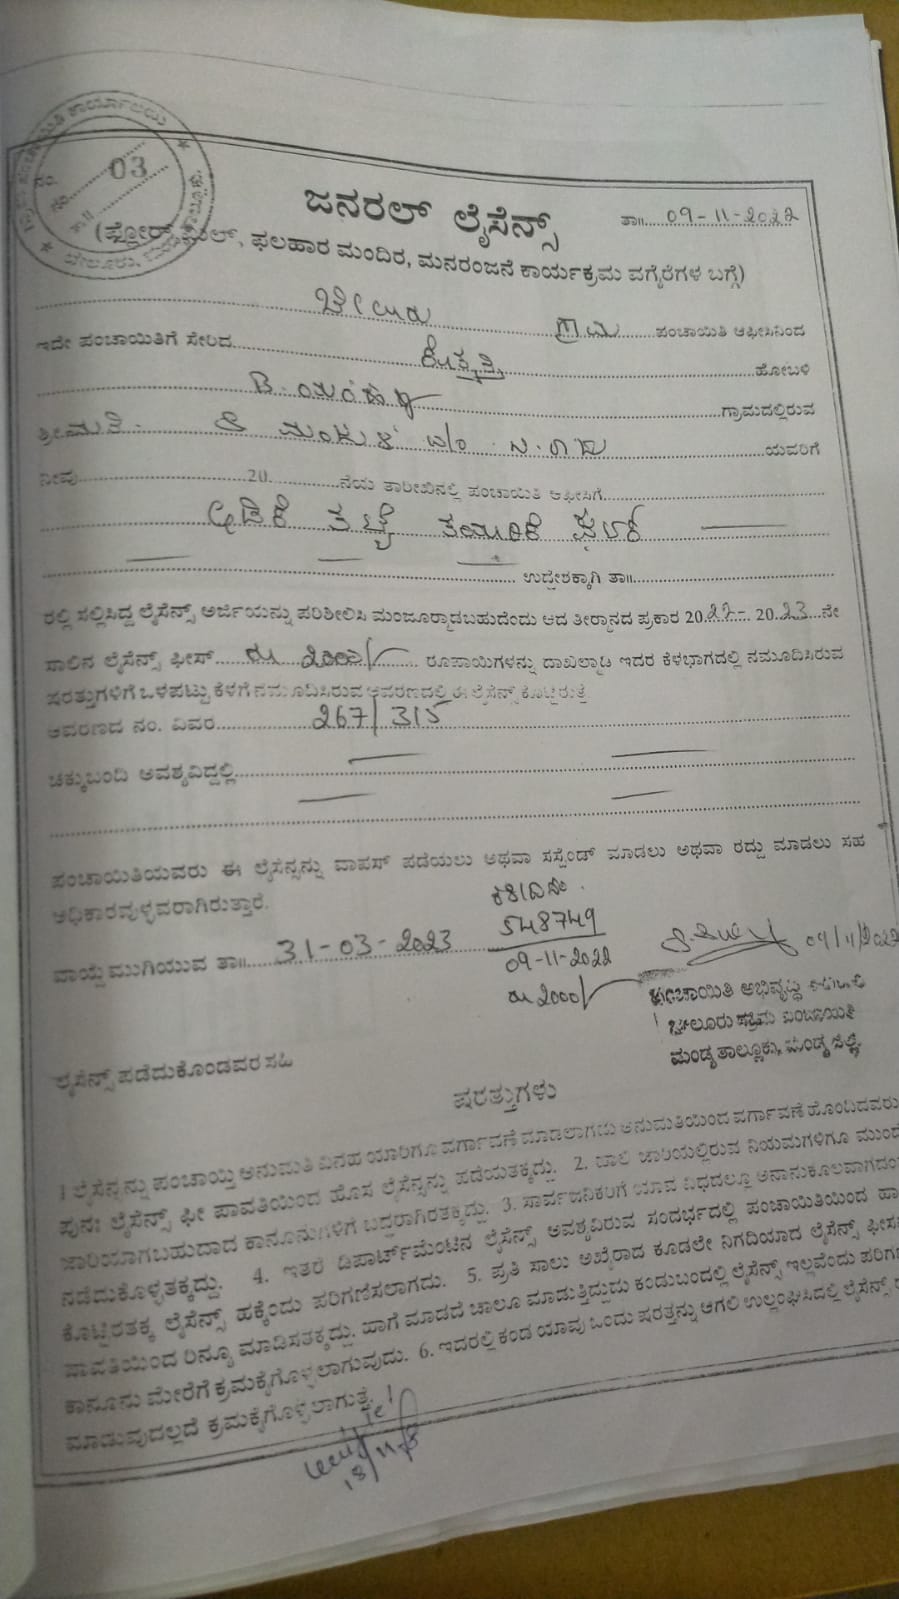 ನಂ. 03
ಜನರಲ್ ಲೈಸೆನ್ಸ್
ತಾ॥ 09-11-2022
(ಫ್ಲೋರ್ ಮಿಲ್, ಫಲಹಾರ ಮಂದಿರ, ಮನರಂಜನೆ ಕಾರ್ಯಕ್ರಮ ವಗೈರೆಗಳ ಬಗ್ಗೆ)
ಬೇಲೂರು ಗ್ರಾಮ ಪಂಚಾಯಿತಿ ಆಫೀಸಿನಿಂದ
ಇದೇ ಪಂಚಾಯಿತಿಗೆ ಸೇರಿದ ಕೊತ್ತತ್ತಿ ಹೋಬಳಿ
ಗ್ರಾಮದಲ್ಲಿರುವ
ಶ್ರೀಮತಿ. ಯವರಿಗೆ
ನೀವು 20 ನೆಯ ತಾರೀಖಿನಲ್ಲಿ ಪಂಚಾಯಿತಿ ಆಫೀಸಿಗೆ
ಅಡಿಕೆ ತಟ್ಟೆ ತಯಾರಿಕೆ ಘಟಕ
ಉದ್ದೇಶಕ್ಕಾಗಿ ತಾ॥
ರಲ್ಲಿ ಸಲ್ಲಿಸಿದ್ದ ಲೈಸೆನ್ಸ್ ಅರ್ಜಿಯನ್ನು ಪರಿಶೀಲಿಸಿ ಮಂಜೂರ್‍ಮಾಡಬಹುದೆಂದು ಆದ ತೀರ್ಮಾನದ ಪ್ರಕಾರ 2022- 2023ನೇ
ಸಾಲಿನ ಲೈಸೆನ್ಸ್ ಫೀಸ್ ರೂ 2000/- ರೂಪಾಯಿಗಳನ್ನು ದಾಖಲ್ಮಾಡಿ ಇದರ ಕೆಳಭಾಗದಲ್ಲಿ ನಮೂದಿಸಿರುವ
ಷರತ್ತುಗಳಿಗೆ ಒಳಪಟ್ಟು ಕೆಳಗೆ ನಮೂದಿಸಿರುವ ಆವರಣದಲ್ಲಿ ಈ ಲೈಸೆನ್ಸ್ ಕೊಟ್ಟಿರುತ್ತೆ.
ಆವರಣದ ನಂ. ವಿವರ 267/315
ಚಕ್ಕುಬಂದಿ ಅವಶ್ಯವಿದ್ದಲ್ಲಿ
ಪಂಚಾಯಿತಿಯವರು ಈ ಲೈಸೆನ್ಸನ್ನು ವಾಪಸ್ ಪಡೆಯಲು ಅಥವಾ ಸಸ್ಪೆಂಡ್ ಮಾಡಲು ಅಥವಾ ರದ್ದು ಮಾಡಲು ಸಹ
ಅಧಿಕಾರವುಳ್ಳವರಾಗಿರುತ್ತಾರೆ.
548749
ವಾಯ್ದೆ ಮುಗಿಯುವ ತಾ॥ 31-03-2023
09-11-2022
ರೂ 2000/-
09/11/2022
ಪಂಚಾಯಿತಿ ಅಭಿವೃದ್ಧಿ
ಬೇಲೂರು ಗ್ರಾಮ ಪಂಚಾಯಿತಿ
ಮಂಡ್ಯ ತಾಲ್ಲೂಕು, ಮಂಡ್ಯ ಜಿಲ್ಲೆ.
ಲೈಸೆನ್ಸ್ ಪಡೆದುಕೊಂಡವರ ಸಹಿ
ಷರತ್ತುಗಳು
1 ಲೈಸೆನ್ಸನ್ನು ಪಂಚಾಯ್ತಿ ಅನುಮತಿ ವಿನಹ ಯಾರಿಗೂ ವರ್ಗಾವಣೆ ಮಾಡಲಾಗದು ಅನುಮತಿಯಿಂದ ವರ್ಗಾವಣೆ ಹೊಂದಿದವರು
ಪುನಃ ಲೈಸೆನ್ಸ್ ಫೀ ಪಾವತಿಯಿಂದ ಹೊಸ ಲೈಸೆನ್ಸನ್ನು ಪಡೆಯತಕ್ಕದ್ದು. 2. ಹಾಲಿ ಜಾರಿಯಲ್ಲಿರುವ ನಿಯಮಗಳಿಗೂ ಮುಂದೆ
ಜಾರಿಯಾಗಬಹುದಾದ ಕಾನೂನುಗಳಿಗೆ ಬದ್ಧರಾಗಿರತಕ್ಕದ್ದು. 3. ಸಾರ್ವಜನಿಕರಿಗೆ ಯಾವ ವಿಧದಲ್ಲೂ ಅನಾನುಕೂಲವಾಗದಂತೆ
ನಡೆದುಕೊಳ್ಳತಕ್ಕದ್ದು. 4. ಇತರೆ ಡಿಪಾರ್ಟ್‌ಮೆಂಟಿನ ಲೈಸೆನ್ಸ್ ಅವಶ್ಯವಿರುವ ಸಂದರ್ಭದಲ್ಲಿ ಪಂಚಾಯಿತಿಯಿಂದ
ಕೊಟ್ಟಿರತಕ್ಕ ಲೈಸೆನ್ಸ್ ಹಕ್ಕೆಂದು ಪರಿಗಣಿಸಲಾಗದು. 5. ಪ್ರತಿ ಸಾಲು ಅಖೈರಾದ ಕೂಡಲೇ ನಿಗದಿಯಾದ ಲೈಸೆನ್ಸ್
ಪಾವತಿಯಿಂದ ರಿನ್ಯೂ ಮಾಡಿಸತಕ್ಕದ್ದು. ಹಾಗೆ ಮಾಡದೆ ಚಾಲೂ ಮಾಡುತ್ತಿದ್ದುದು ಕಂಡುಬಂದಲ್ಲಿ ಲೈಸೆನ್ಸ್ ಇಲ್ಲವೆಂದು
ಕಾನೂನು ಮೇರೆಗೆ ಕ್ರಮಕೈಗೊಳ್ಳಲಾಗುವುದು. 6. ಇದರಲ್ಲಿ ಕಂಡ ಯಾವು ಒಂದು ಷರತ್ತನ್ನು ಆಗಲಿ ಉಲ್ಲಂಘಿಸಿದಲ್ಲಿ ಲೈಸೆನ್ಸ್
ಮಾಡುವುದಲ್ಲದೆ ಕ್ರಮಕೈಗೊಳ್ಳಲಾಗುತ್ತೆ.